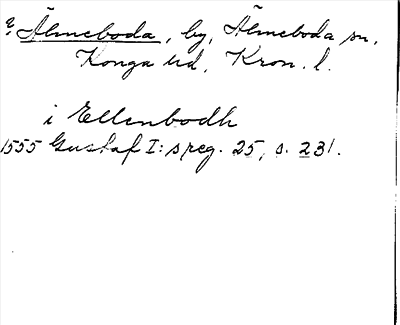 Älmeboda, by, Älmeboda sn,
Konga hd, Kron. l.
i Ellenbodh
1555 Gustaf I:s reg. 25, s. 231.